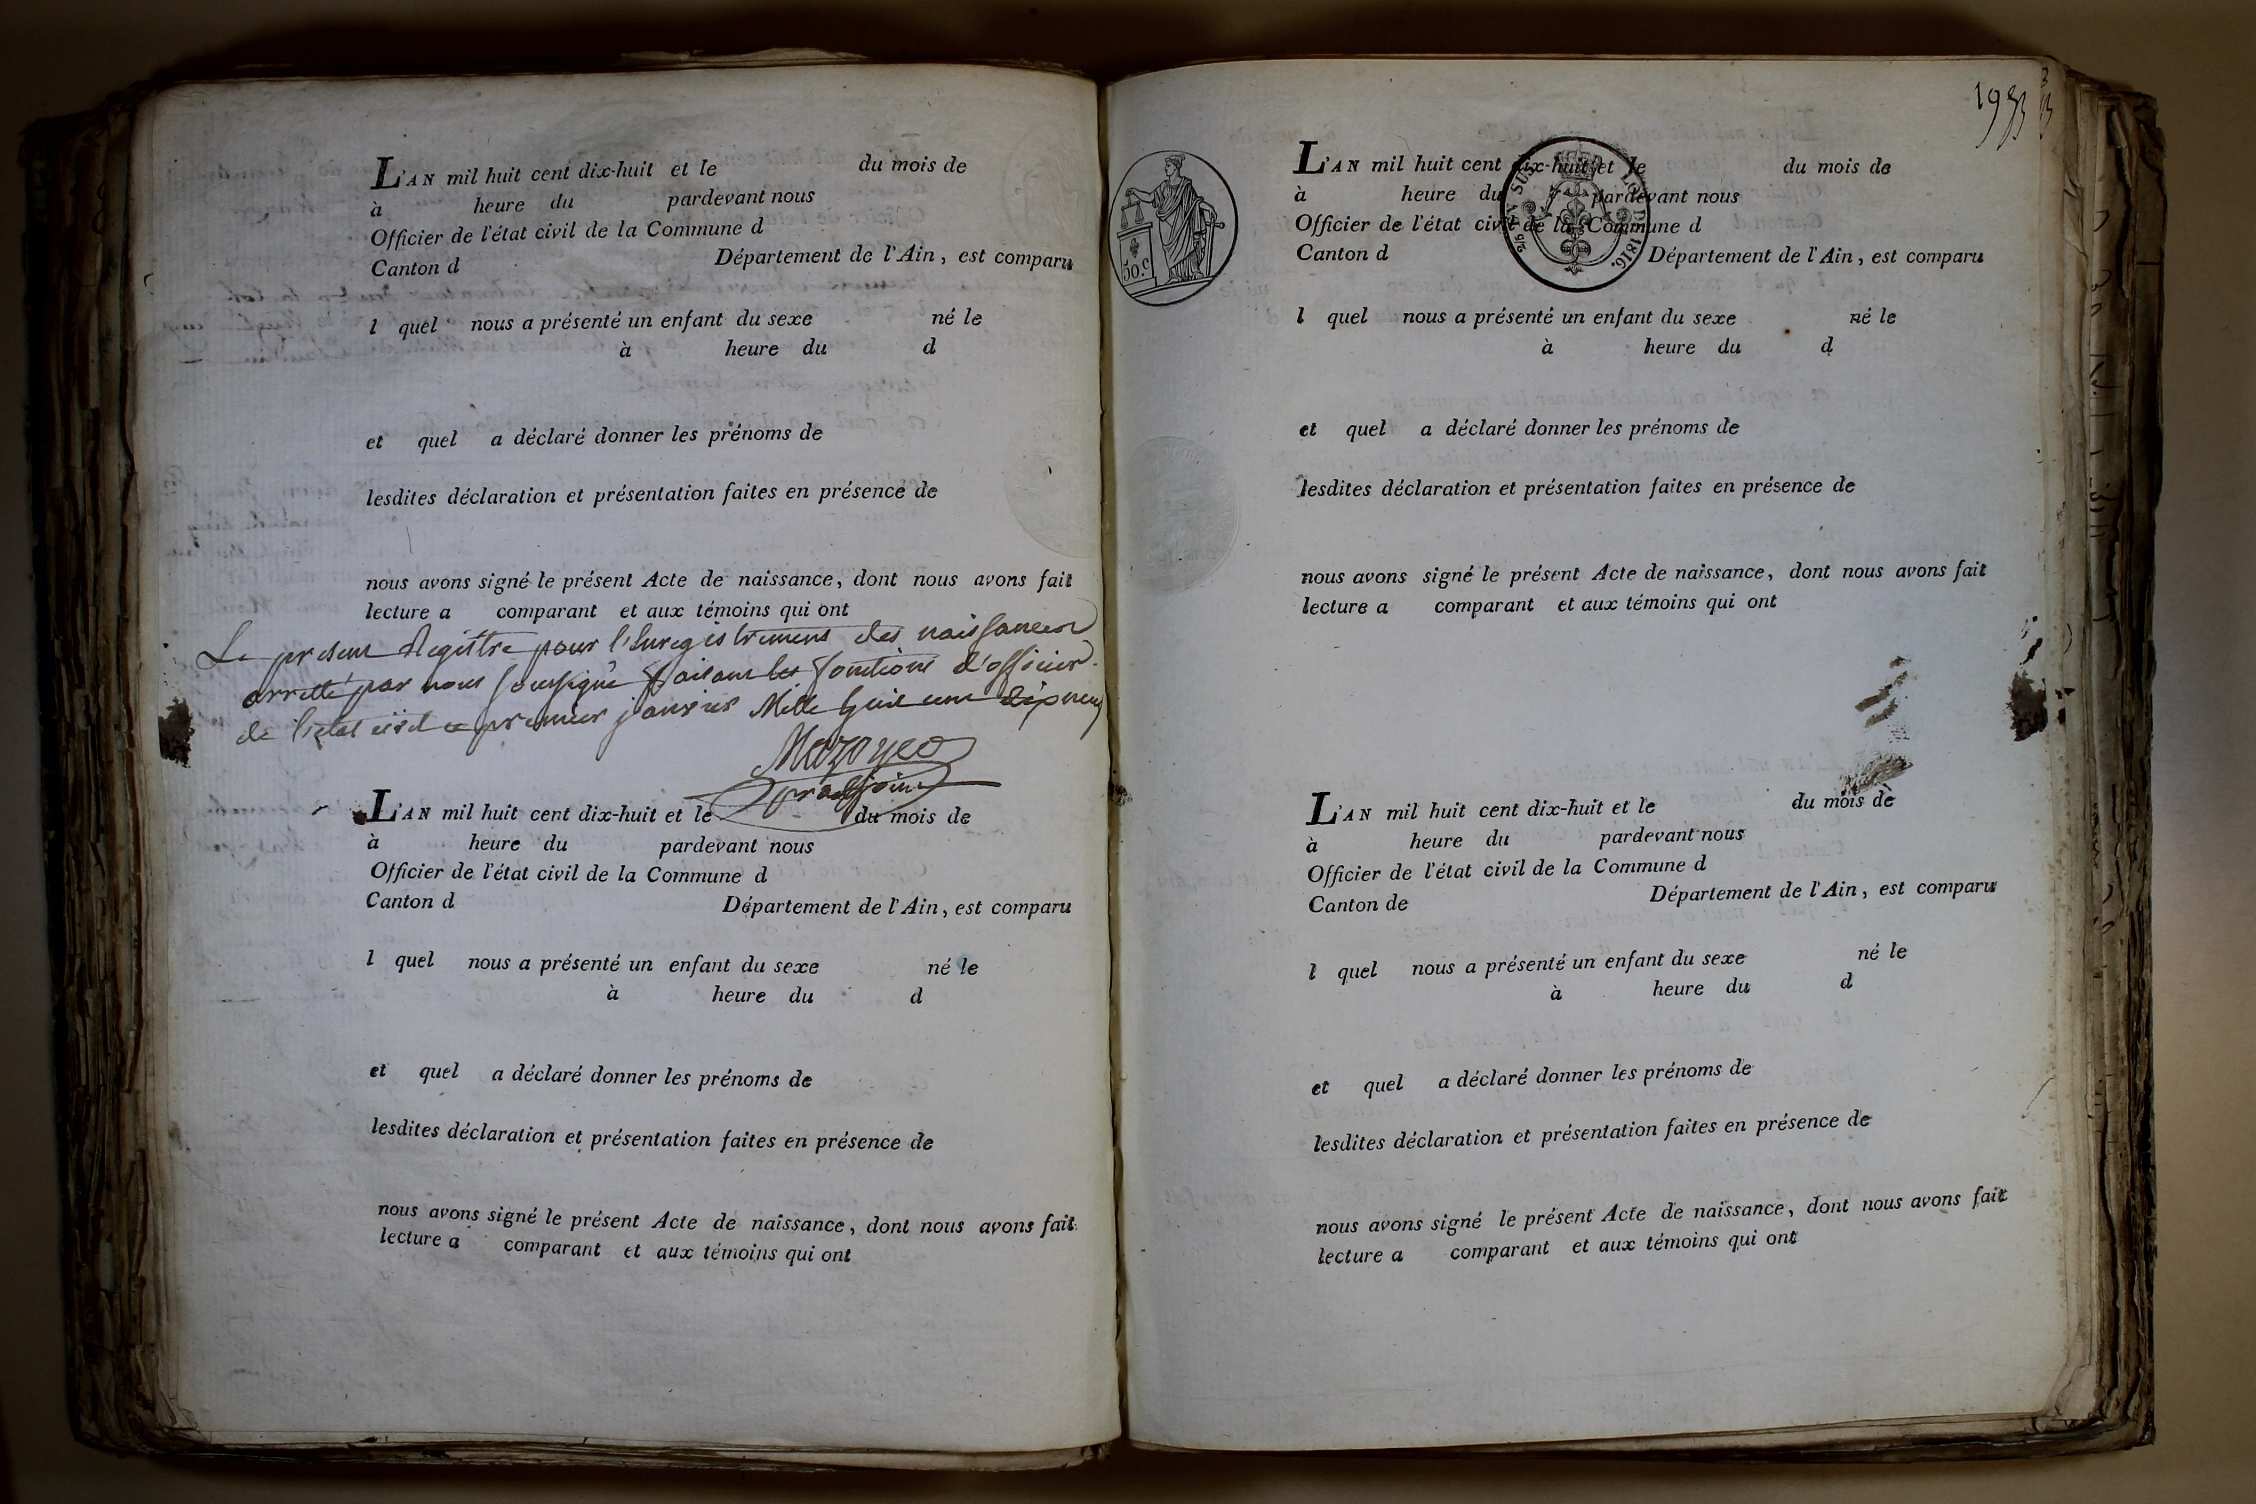 L'AN mil huit cent dix-huit et le du mois de
à heure du pardevant nous
Officier de l'état civil de la Commune d
Canton d Département de l'Ain, est comparu
l quel nous a présenté un enfant du sexe né le
à heure du d
et quel a déclaré donner les prénoms de
lesdites déclaration et présentation faites en présence de
nous avons signé le présent Acte de naissance, dont nous avons fait
lecture a comparant et aux témoins qui ont
Le présent Registre pour l'Enregistrement des naissances
arretté par nous soussigné faisant les fonctions d'officier
de l'etat civil ce premier janvier Mille huit cent dix neuf
L'AN mil huit cent dix-huit et le du mois de
à heure du pardevant nous
Officier de l'état civil de la Commune d
Canton d Département de l'Ain, est comparu
l quel nous a présenté un enfant du sexe né le
à heure du d
et quel a déclaré donner les prénoms de
lesdites déclaration et présentation faites en présence de
nous avons signé le présent Acte de naissance, dont nous avons fait
lecture a comparant et aux témoins qui ont
50.c
LOI DE 1816.
L'AN mil huit cent dix-huit et le du mois de
à heure du pardevant nous
Officier de l'état civil de la Commune d
Canton d Département de l'Ain, est comparu
l quel nous a présenté un enfant du sexe né le
à heure du d
et quel a déclaré donner les prénoms de
lesdites déclaration et présentation faites en présence de
nous avons signé le présent Acte de naissance, dont nous avons fait
lecture a comparant et aux témoins qui ont
L'AN mil huit cent dix-huit et le du mois de
à heure du pardevant nous
Officier de l'état civil de la Commune d
Canton de Département de l'Ain, est comparu
l quel nous a présenté un enfant du sexe né le
à heure du d
et quel a déclaré donner les prénoms de
lesdites déclaration et présentation faites en présence de
nous avons signé le présent Acte de naissance, dont nous avons fait
lecture a comparant et aux témoins qui ont